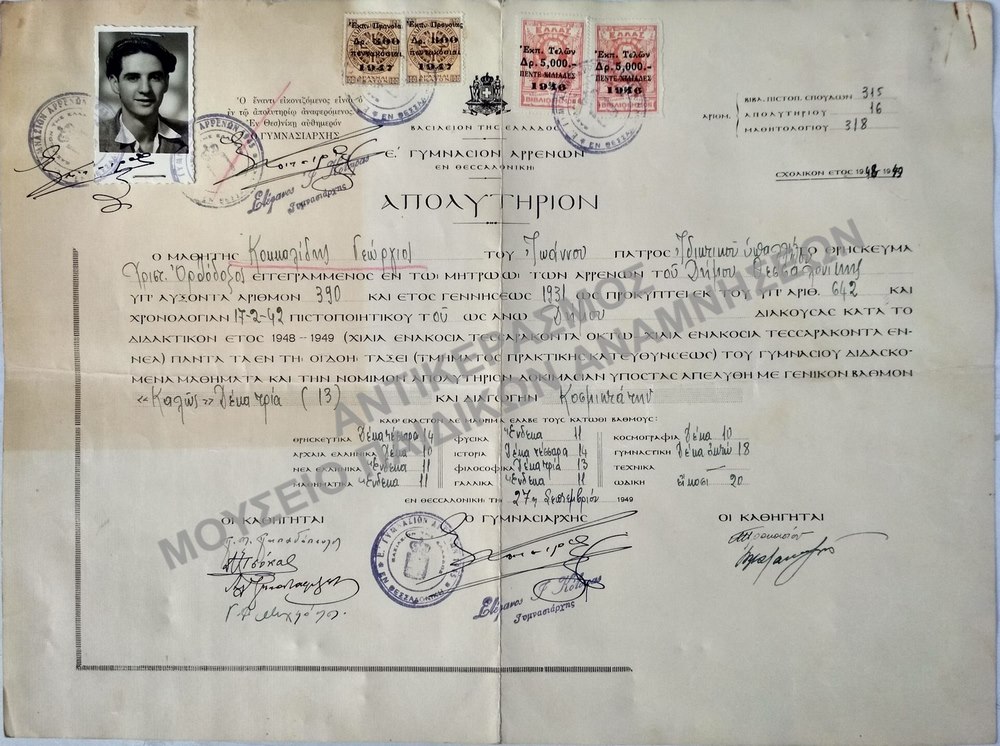 Εκπ. Πρόνοια
Δρ. 500
πεντακόσιαι
1947
Εκπ. Πρόνοια
Δρ. 500
πεντακόσιαι
1947
ΕΛΛΑΣ
Ἐκπ. Τελῶν
Δρ. 5,000.-
ΠΕΝΤΕ ΧΙΛΙΑΔΕΣ
1946
ΕΛΛΑΣ
Ἐκπ. Τελῶν
Δρ. 5,000.-
ΠΕΝΤΕ ΧΙΛΙΑΔΕΣ
1946
Ὁ ἔναντι εἰκονιζόμενος εἶναι ὁ
ἐν τῷ ἀπολυτηρίῳ ἀναφερόμενος.
Ἐν Θεσ)νίκῃ αὐθημερόν
Ὁ ΓΥΜΝΑΣΙΑΡΧΗΣ
ΒΑΣΙΛΕΙΟΝ ΤΗΣ ΕΛΛΑΔΟΣ
Ε΄. ΓΥΜΝΑΣΙΟΝ ΑΡΡΕΝΩΝ
ΕΝ ΘΕΣΣΑΛΟΝΙΚΗι
ΑΡΙΘΜ.
ΒΙΒΛ. ΠΙΣΤΟΠ. ΣΠΟΥΔΩΝ 315
ΑΠΟΛΥΤΗΡΙΟΥ 16
ΜΑΘΗΤΟΛΟΓΙΟΥ 318
ΣΧΟΛΙΚΟΝ ΕΤΟΣ 1948-1949
Γυμνασιάρχης
ΑΠΟΛΥΤΗΡΙΟΝ
Ο ΜΑΘΗΤΗΣ Κουμαλίδης Γεώργιος ΤΟΥ Ἰωάννου ΠΑΤΡΟΣ Ἰδιωτικοῦ ὑπαλλήλου ΤΟ ΘΡΗΣΚΕΥΜΑ
Χριστ. Ὀρθόδοξος ΕΓΓΕΓΡΑΜΜΕΝΟΣ ΕΝ ΤΩι ΜΗΤΡΩΩι ΤΩΝ ΑΡΡΕΝΩΝ ΤΟΥ Δήμου Θεσσαλονίκης
ΥΠ' ΑΥΞΟΝΤΑ ΑΡΙΘΜΟΝ 390 ΚΑΙ ΕΤΟΣ ΓΕΝΝΗΣΕΩΣ 1931 ΩΣ ΠΡΟΚΥΠΤΕΙ ΕΚ ΤΟΥ ΥΠ' ΑΡΙΘ. 642 ΚΑΙ
ΧΡΟΝΟΛΟΓΙΑΝ 17-2-42 ΠΙΣΤΟΠΟΙΗΤΙΚΟΥ ΤΟΥ ΩΣ ΑΝΩ Δήμου ΔΙΑΚΟΥΣΑΣ ΚΑΤΑ ΤΟ
ΔΙΔΑΚΤΙΚΟΝ ΕΤΟΣ 1948-1949 (ΧΙΛΙΑ ΕΝΑΚΟΣΙΑ ΤΕΣΣΑΡΑΚΟΝΤΑ ΟΚΤΩ - ΧΙΛΙΑ ΕΝΑΚΟΣΙΑ ΤΕΣΣΑΡΑΚΟΝΤΑ ΕΝ-
ΝΕΑ) ΠΑΝΤΑ ΤΑ ΕΝ ΤΗι ΟΓΔΟΗι ΤΑΞΕΙ (ΤΜΗΜΑΤΟΣ ΠΡΑΚΤΙΚΗΣ ΚΑΤΕΥΘΥΝΣΕΩΣ) ΤΟΥ ΓΥΜΝΑΣΙΟΥ ΔΙΔΑΣΚΟ-
ΜΕΝΑ ΜΑΘΗΜΑΤΑ ΚΑΙ ΤΗΝ ΝΟΜΙΜΟΝ ΑΠΟΛΥΤΗΡΙΟΝ ΔΟΚΙΜΑΣΙΑΝ ΥΠΟΣΤΑΣ ΑΠΕΛΥΘΗ ΜΕ ΓΕΝΙΚΟΝ ΒΑΘΜΟΝ
«Καλῶς» Δέκα τρία (13) ΚΑΙ ΔΙΑΓΩΓΗΝ Κοσμιωτάτην
ΚΑΘ' ΕΚΑΣΤΟΝ ΔΕ ΜΑΘΗΜΑ ΕΛΑΒΕ ΤΟΥΣ ΚΑΤΩΘΙ ΒΑΘΜΟΥΣ:
ΘΡΗΣΚΕΥΤΙΚΑ Δέκα τέσσαρα 14 ΦΥΣΙΚΑ Ἕνδεκα 11 ΚΟΣΜΟΓΡΑΦΙΑ Δέκα 10
ΑΡΧΑΙΑ ΕΛΛΗΝΙΚΑ Δέκα 10 ΙΣΤΟΡΙΑ Δέκα τέσσαρα 14 ΓΥΜΝΑΣΤΙΚΗ Δέκα ὀκτώ 18
ΝΕΑ ΕΛΛΗΝΙΚΑ Ἕνδεκα 11 ΦΙΛΟΣΟΦΙΚΑ Δέκα τρία 13 ΤΕΧΝΙΚΑ —
ΜΑΘΗΜΑΤΙΚΑ Ἕνδεκα 11 ΓΑΛΛΙΚΑ Ἕνδεκα 11 ΩΔΙΚΗ εἴκοσι 20
ΕΝ ΘΕΣΣΑΛΟΝΙΚΗι ΤΗι 27η Σεπτεμβρίου 1949
ΟΙ ΚΑΘΗΓΗΤΑΙ Ο ΓΥΜΝΑΣΙΑΡΧΗΣ ΟΙ ΚΑΘΗΓΗΤΑΙ
Ε΄. ΓΥΜΝΑΣΙΟΝ ΑΡΡΕΝΩΝ
ΕΝ ΘΕΣΣΑΛΟΝΙΚΗ
Γυμνασιάρχης
ΑΝΤΙΚΕΡΑΣΜΟΣ
ΜΟΥΣΕΙΟ ΠΑΙΔΙΚΩΝ ΑΝΑΜΝΗΣΕΩΝ